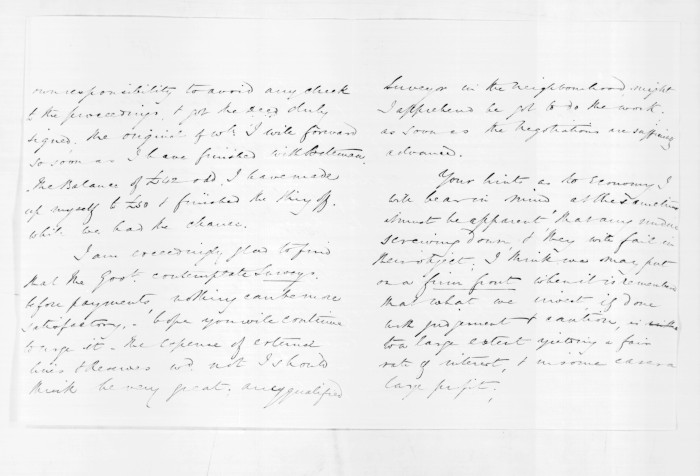 own responsibility to avoid any check
to the proceedings, & got the deed duly
signed. The original of wh I will forward
so soon as I have finished with
The Balance of £42 odd, I have made
up myself to £50 & finished the thing off.
while we had the chance.
I am exceedingly glad to find
that the Govt. contemplate Surveys.
before payments, nothing can be more
satisfactory, - hope you will continue
to urge it - the expense of external
lines & reserves wd. not I should
think be very great. any qualified
Surveyor in the neighbourhood might
I apprehend be got to do the work,
as soon as the Negotiations are suffcy
advanced.
Your hints as to Economy, I
will bear in mind at the same time
it must be apparent that any undue
screwing down, & they will fail in
their object; I think we may put
on a firm front when it is remembered
that what we invest if done
with judgement & caution, is
to a large extent yielding a fair
rate of interest, & in some cases a
large profit.